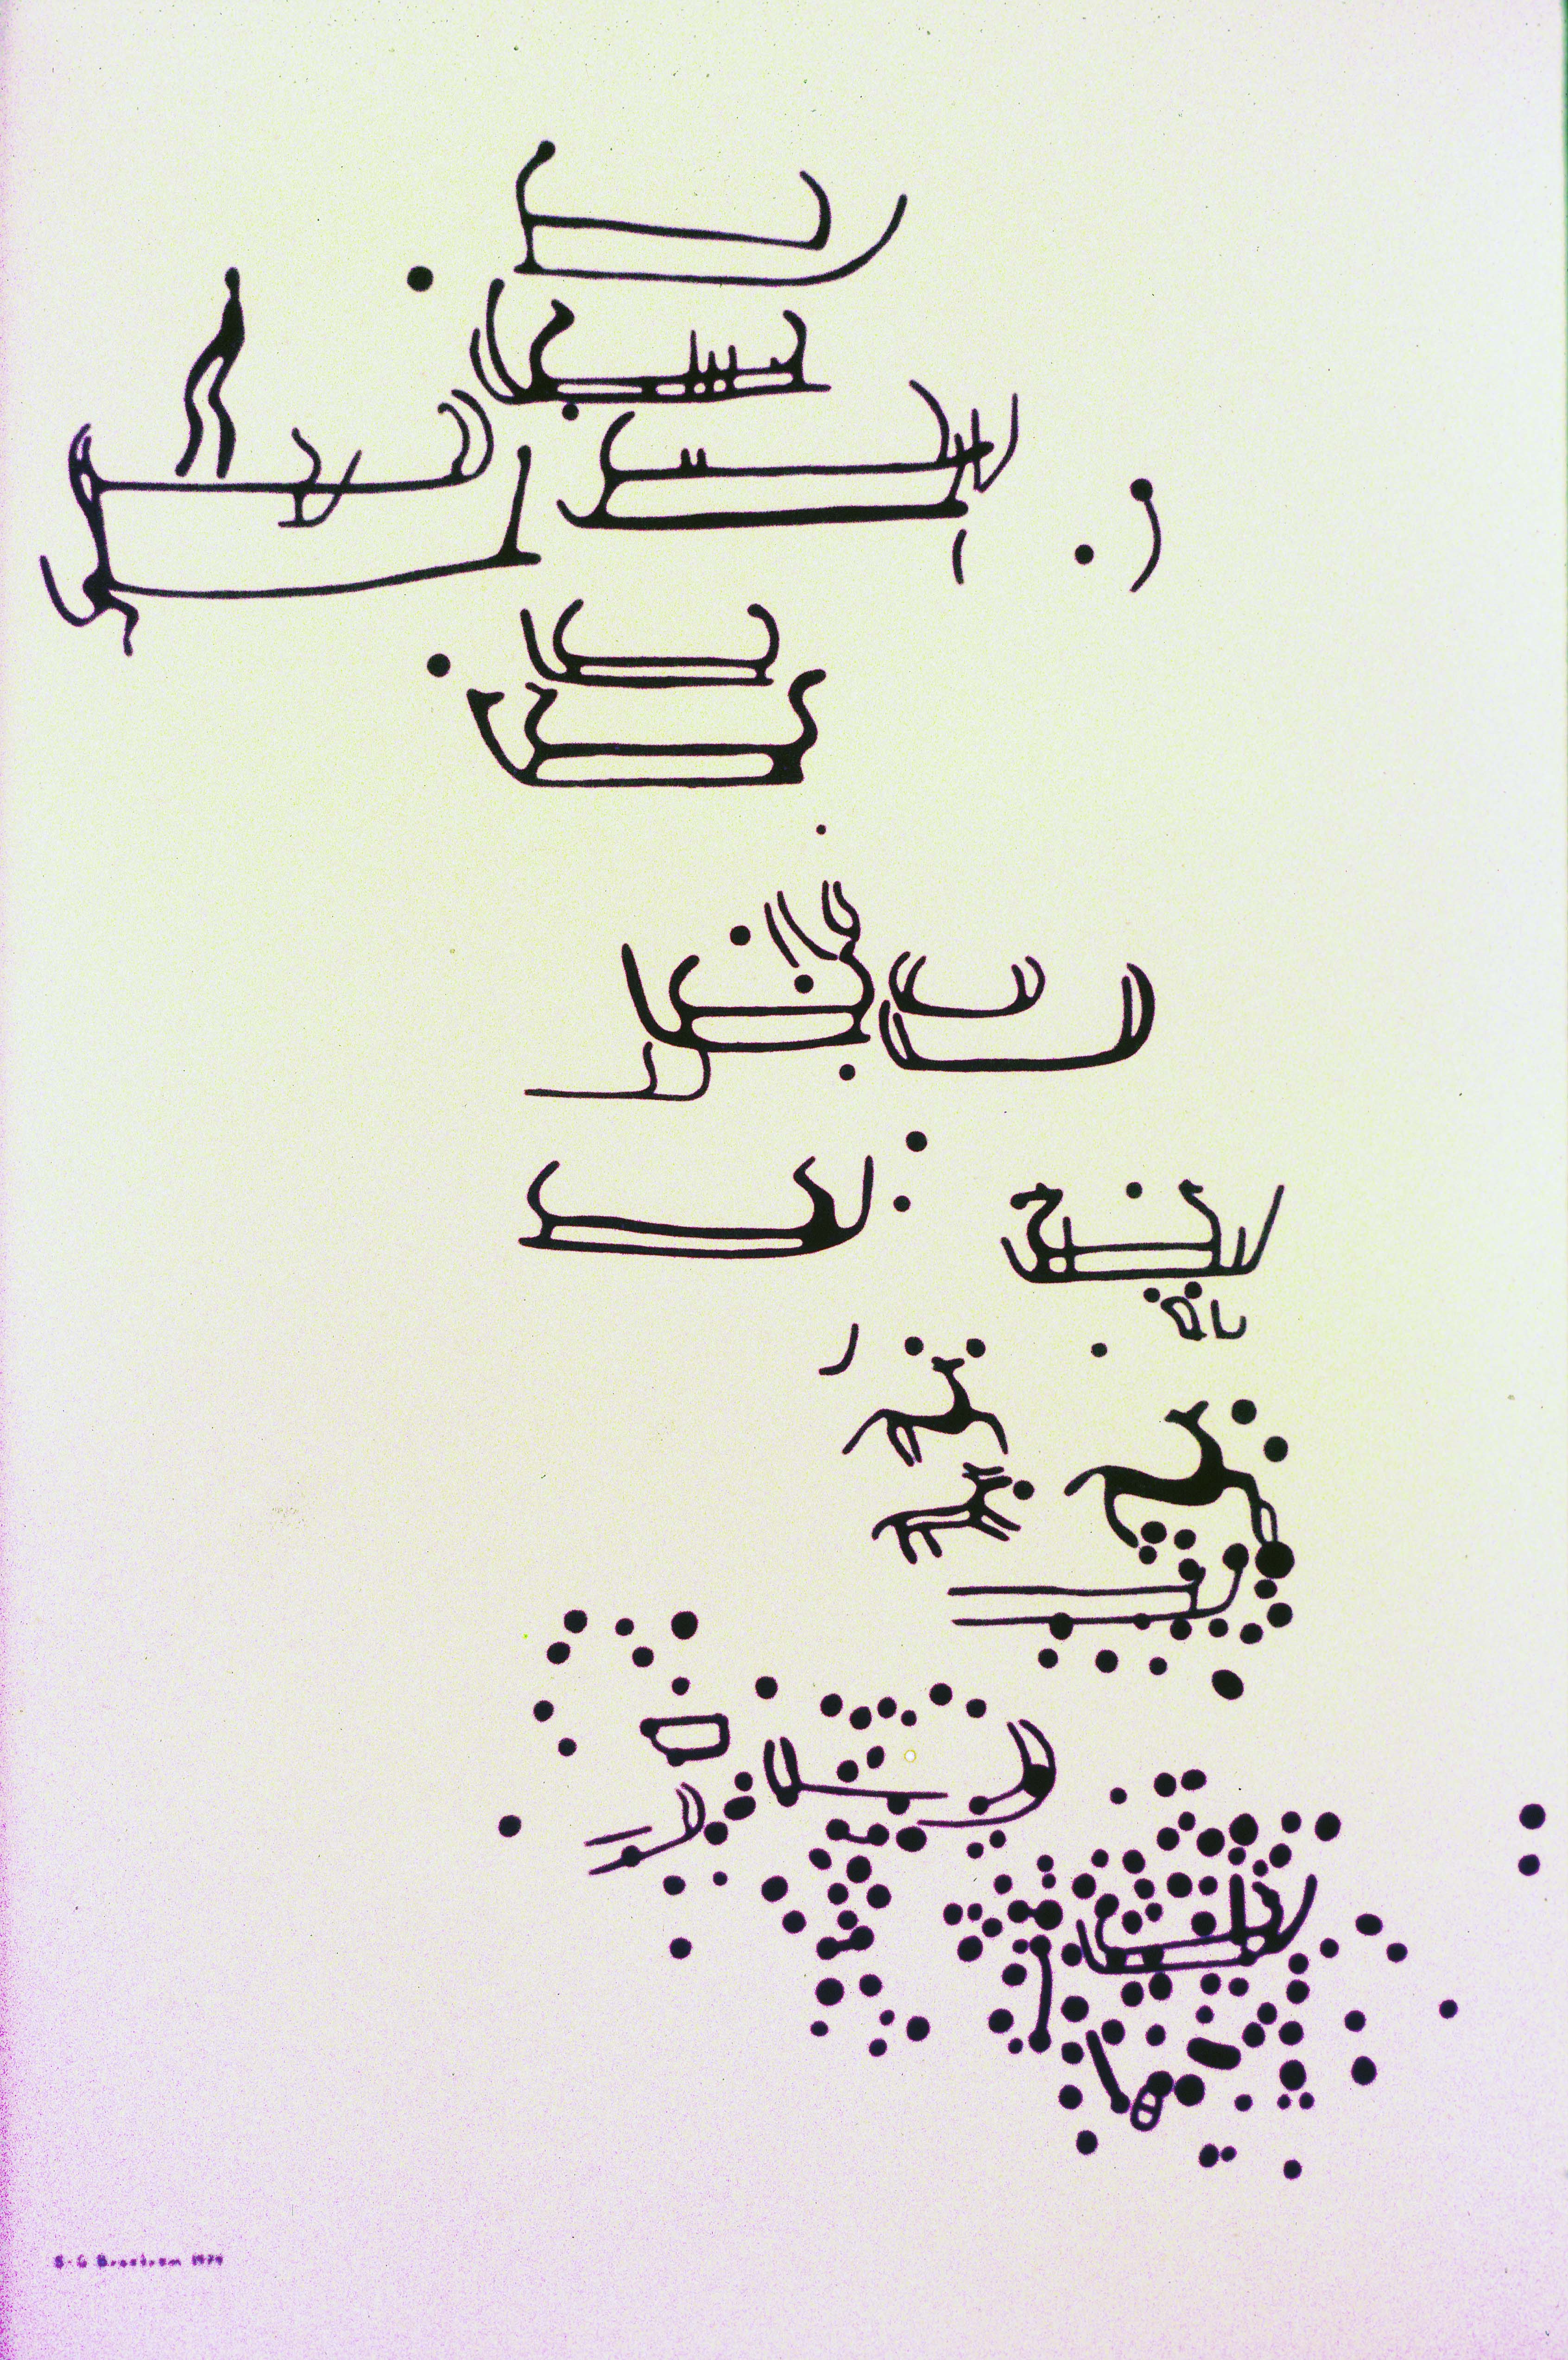 S-G Broström 1979